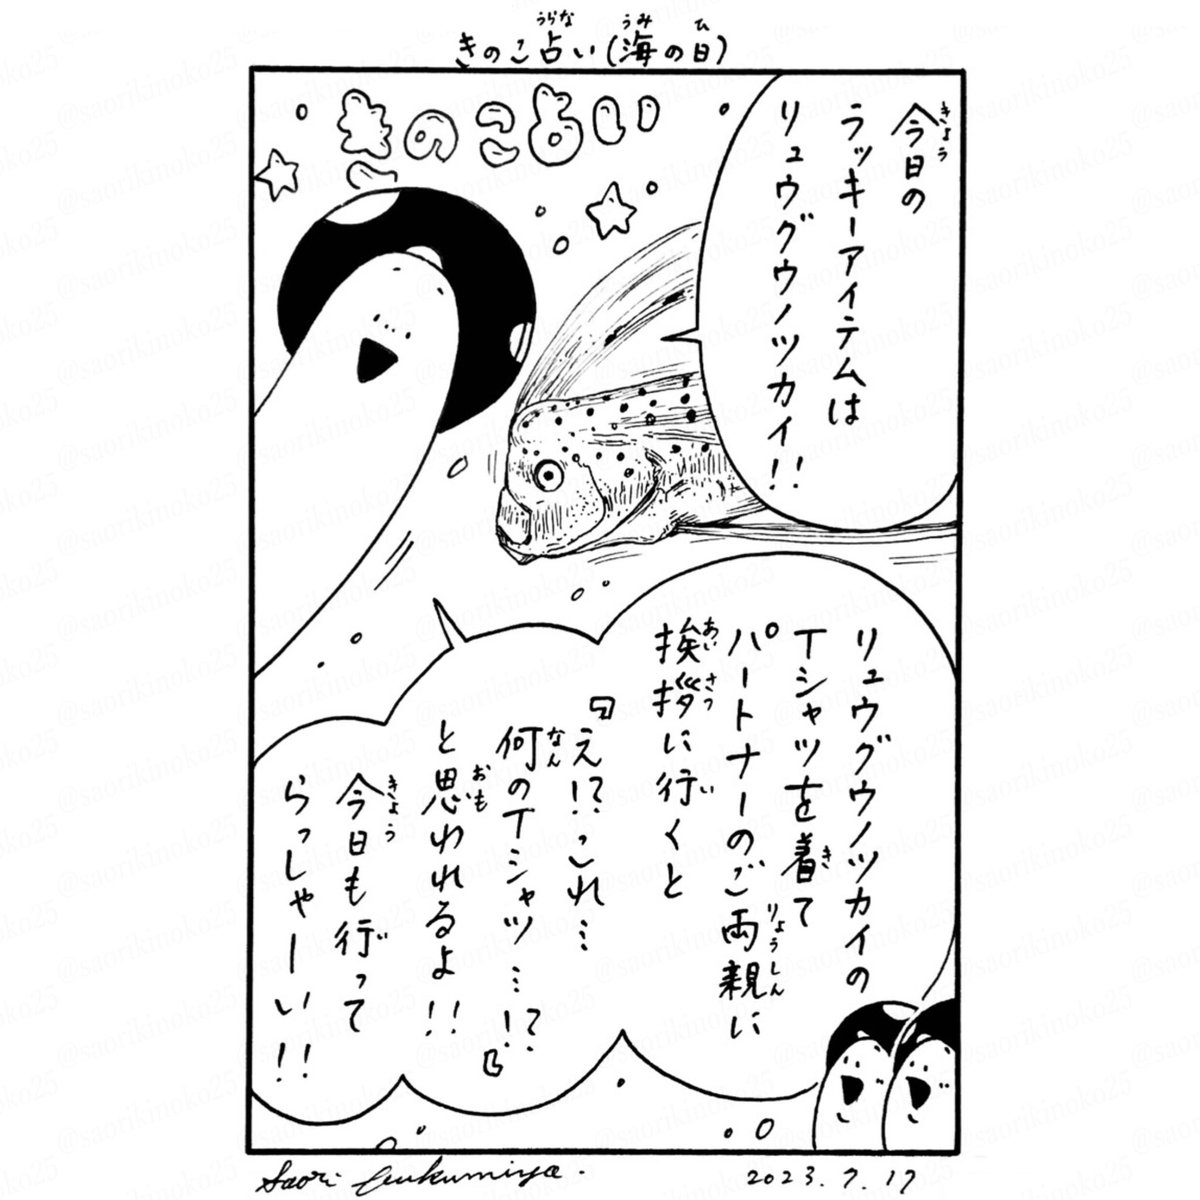 きのこ占い(海の日)
きのこ占い
今日の
ラッキーアイテムは
リュウグウノツカイ!!
リュウグウノツカイの
Tシャツを着て
パートナーのご両親に
挨拶に行くと
『え!?これ…
何のTシャツ…!?』
と思われるよ!!
今日も行って
らっしゃーい!!
Saori Fukumiya.
2023.7.17
@saorikinoko25